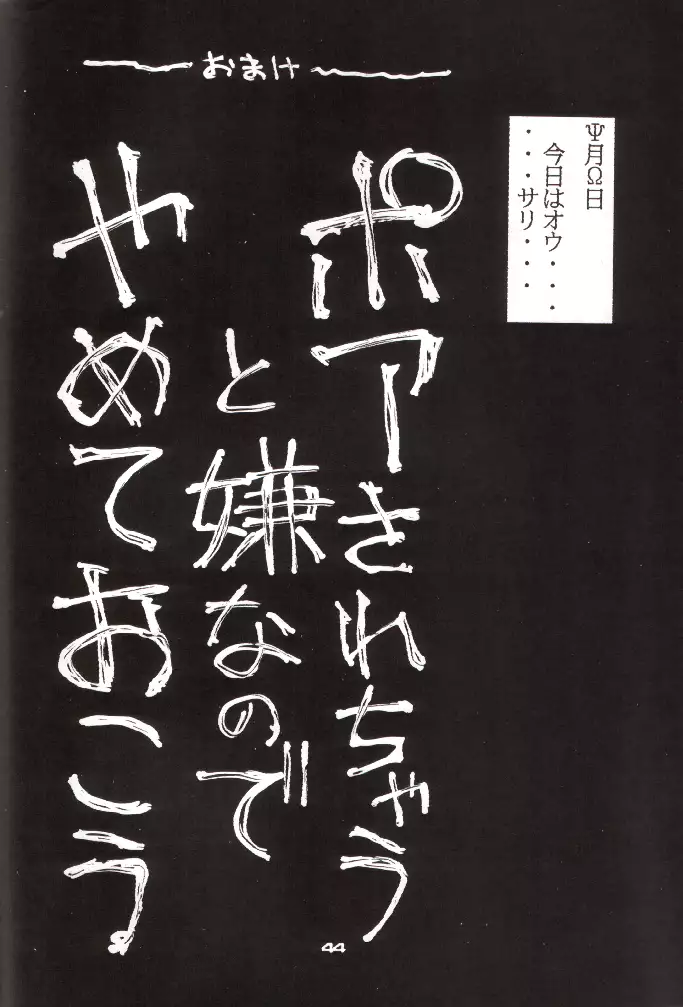 おまけ
Ψ月Ω日
今日はオウ・・・
・・・サリ・・・・
ポアされちゃう
と嫌なので
やめておこう。
44